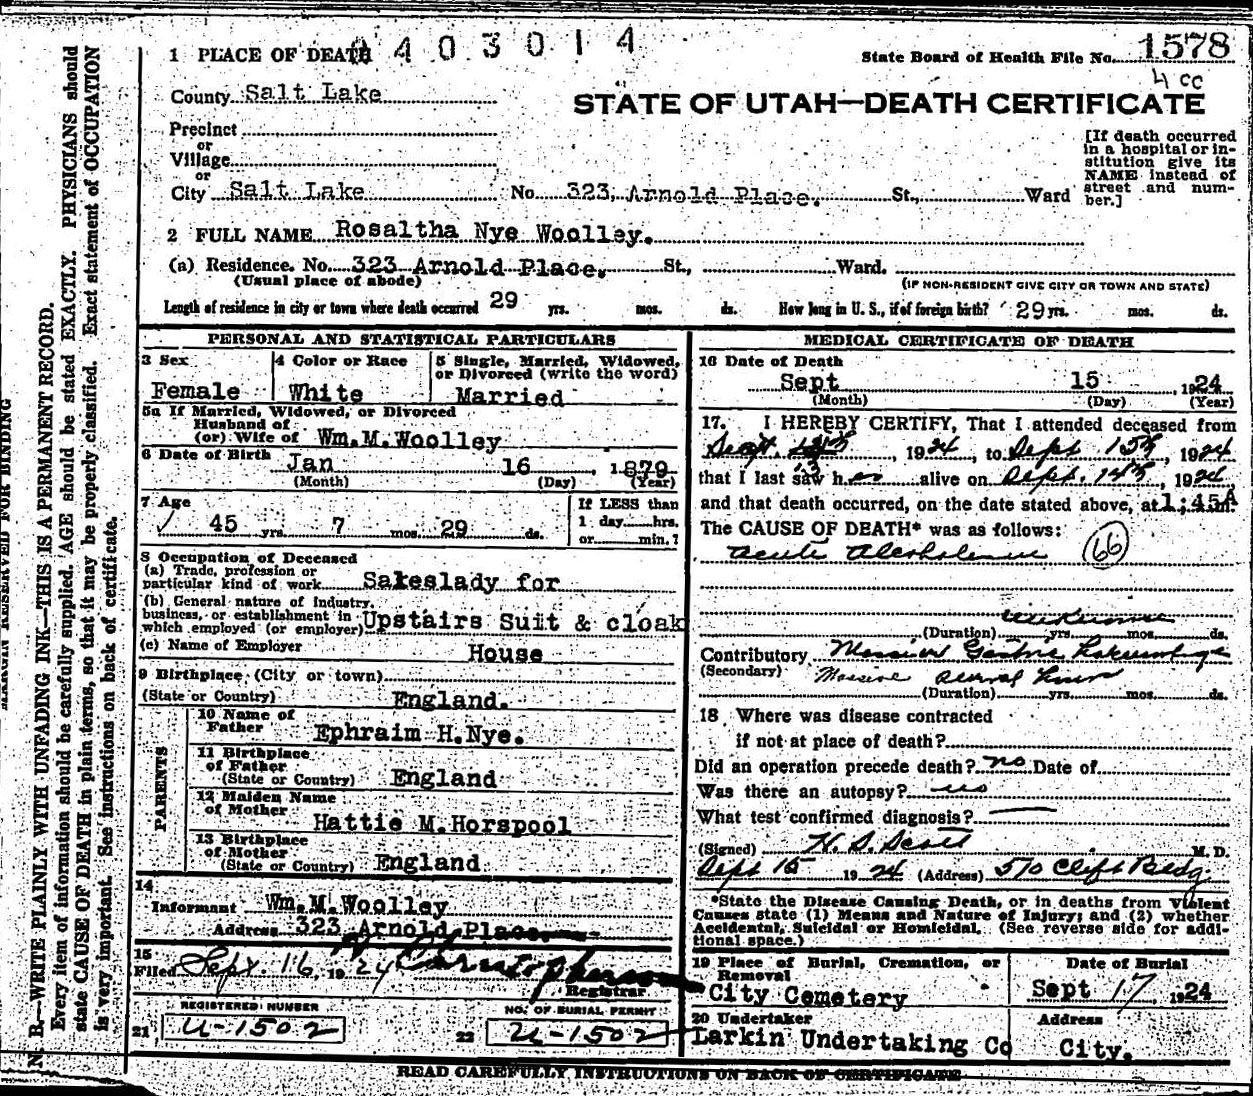 1 PLACE OF DEATH 403014
State Board of Health File No. 1578
4 cc
County Salt Lake
STATE OF UTAH—DEATH CERTIFICATE
Precinct
or
Village
or
City Salt Lake No. 323 Arnold Place. St., Ward
[If death occurred
in a hospital or in-
stitution give its
NAME instead of
street and num-
ber.]
2 FULL NAME Rosaltha Nye Woolley.
(a) Residence. No. 323 Arnold Place. St., Ward.
(Usual place of abode) (IF NON-RESIDENT GIVE CITY OR TOWN AND STATE)
Length of residence in city or town where death occurred 29 yrs. mos. ds. How long in U. S., if of foreign birth? 29 yrs. mos. ds.
PERSONAL AND STATISTICAL PARTICULARS
3 Sex 4 Color or Race 5 Single, Married, Widowed,
or Divorced (write the word)
Female White Married
5a If Married, Widowed, or Divorced
Husband of
(or) Wife of Wm.M.Woolley
6 Date of Birth Jan 16, 1879
(Month) (Day) (Year)
7 Age If LESS than
45 yrs. 7 mos. 29 ds. 1 day hrs.
or min.?
8 Occupation of Deceased
(a) Trade, profession or
particular kind of work Saleslady for
(b) General nature of Industry,
business, or establishment in
which employed (or employer) Upstairs Suit & cloak
(c) Name of Employer House
9 Birthplace (City or town)
(State or Country) England.
PARENTS
10 Name of
Father Ephraim H.Nye.
11 Birthplace
of Father
(State or Country) England
12 Maiden Name
of Mother Hattie M.Horspool
13 Birthplace
of Mother
(State or Country) England
14
Informant Wm.M.Woolley
Address 323 Arnold Place.
15
Filed Sept. 16, 1924
Registrar
REGISTERED NUMBER NO. OF BURIAL PERMIT
21 U-1502 22 U-1502
MEDICAL CERTIFICATE OF DEATH
16 Date of Death
Sept 15, 1924
(Month) (Day) (Year)
17. I HEREBY CERTIFY, That I attended deceased from
Sept. 13, 1924, to Sept 15th, 1924
that I last saw her alive on Sept. 14th, 1924
and that death occurred, on the date stated above, at 1:45A m.
The CAUSE OF DEATH* was as follows:
Acute Alcoholism (66)
unknown
(Duration) yrs. mos. ds.
Contributory Massive Gastric
(Secondary) Massive
(Duration) yrs. mos. ds.
18 Where was disease contracted
if not at place of death?
Did an operation precede death? no Date of
Was there an autopsy? no
What test confirmed diagnosis? —
(Signed) H. S. Scott M. D.
Sept 15 1924 (Address) 510 Clift Bldg.
*State the Disease Causing Death, or in deaths from Violent
Causes state (1) Means and Nature of Injury; and (2) whether
Accidental, Suicidal or Homicidal. (See reverse side for addi-
tional space.)
19 Place of Burial, Cremation, or
Removal
City Cemetery
Date of Burial
Sept 17, 1924
20 Undertaker Address
Larkin Undertaking Co City.
READ CAREFULLY INSTRUCTIONS ON BACK OF CERTIFICATE
MARGIN RESERVED FOR BINDING
N. B.—WRITE PLAINLY WITH UNFADING INK—THIS IS A PERMANENT RECORD.
Every item of information should be carefully supplied. AGE should be stated EXACTLY. PHYSICIANS should
state CAUSE OF DEATH in plain terms, so that it may be properly classified. Exact statement of OCCUPATION
is very important. See instructions on back of certificate.